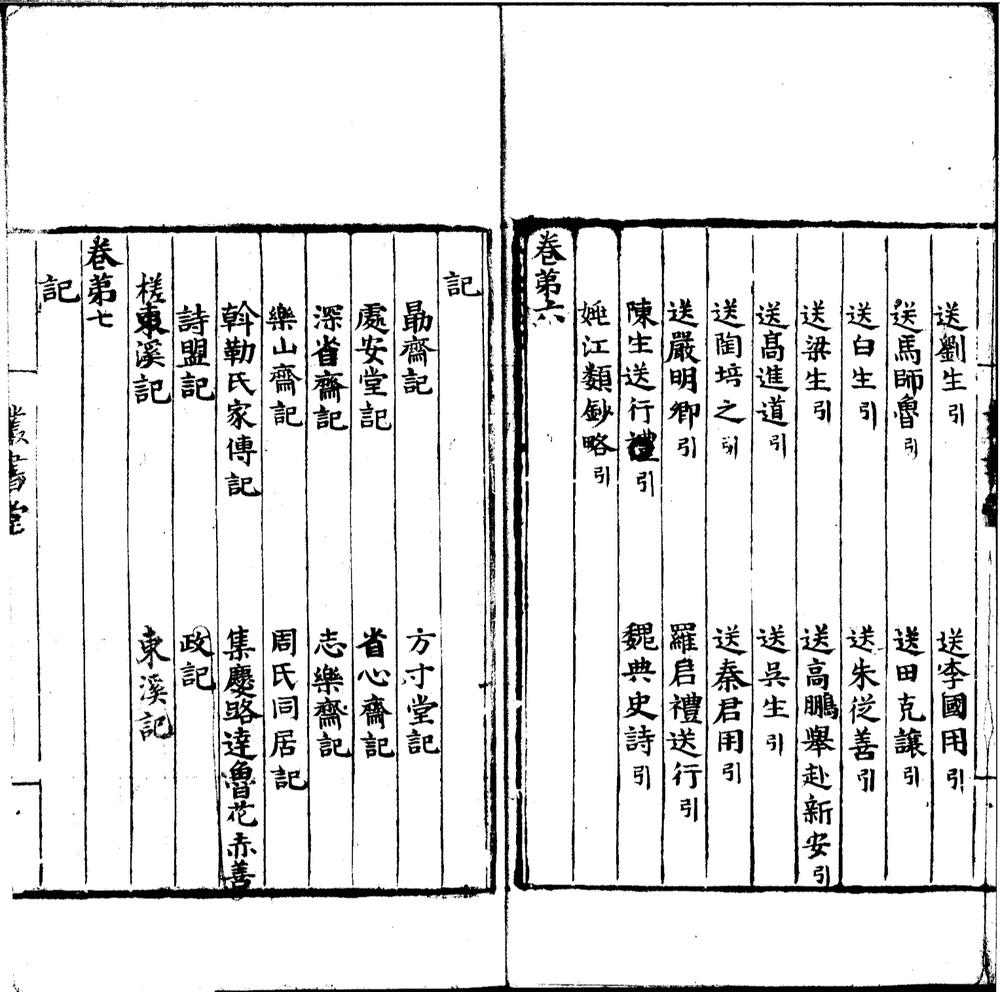 送劉生引 送李國用引
送馬師魯引 送田克讓引
送白生引 送朱從善引
送梁生引 送高鵬舉赴新安引
送高進道引 送吳生引
送陶培之引 送秦君用引
送嚴明卿引 羅启禮送行引
陳生送行禮引 魏典史詩引
江類鈔略引
卷第六
記
勗齋記 方寸堂記
處安堂記 省心齋記
深省齋記 志樂齋記
樂山齋記 周氏同居記
斡勒氏家傳記 集慶路達魯花赤善
詩盟記 政記
槎溪記 東溪記
卷第七
記
叢書堂